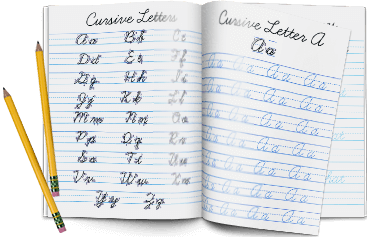 Cursive Letters
Aa Bb Cc
Dd Ee Ff
Gg Hh Ii
Jj Kk Ll
Mm Nn Oo
Pp Qq Rr
Ss Tt Uu
Vv Ww Xx
Yy Zz
Cursive Letter A
Aa
Aa Aa Aa Aa
Aa Aa Aa Aa
Aa Aa Aa Aa
Aa Aa Aa Aa
Aa Aa Aa Aa
Aa Aa Aa Aa
Aa Aa Aa Aa
Aa Aa Aa Aa